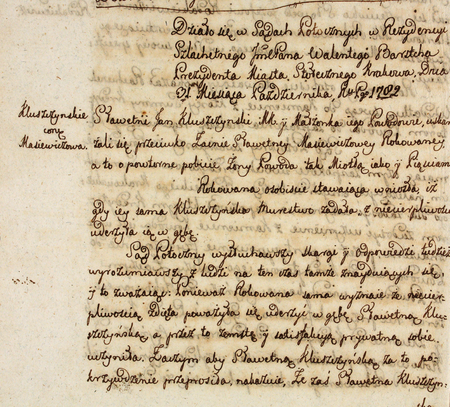 Działo się w Sądach Potocznych w Rezydencyi
Szlachetnego Jmć Pana Walentego Bartscha
Prezydenta Miasta Stołecznego Krakowa, Dnia
Miesiąca Października 1782
Kluszczynskie
conq
Masiewiczowa
Sławetni Jan Kluszczynski, i Małżonka iego Powodowie, uskar
żali się przeciwko Zofii Sławetney Masiewiczowey Rokowaney
a to o powtorne pobicie Żony Powoda tak Miotłą iako y Pięściami
Rokowana osobiście stawaiąca wniosła iż
gdy iey sama Kluszczynska zadała, z niecierpliwości
uderzyła ią w gębę.
Sąd Potoczny wysłuchawszy skargi y odpowiedzi tudzież
wyrozumiawszy z ludzi na ten czas tamże znayduiących się,
y to zważaiąc: Ponieważ Rokowana sama wyznaie że z niecier-
pliwości poważyła się uderzyć w gębę Sławetną Klu-
szczynską a przez to zemstę y satisfakcyą prywatną sobie
uczyniła. Zaczym aby Sławetną Kluszczynską za to po-
krzywdzenie przeprosiła, nakazuie, Że zaś Sławetna Kluszczyn-
ska